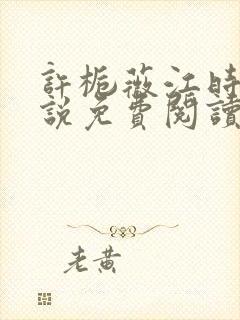 許梔薇江時
說免費閱讀
老黃